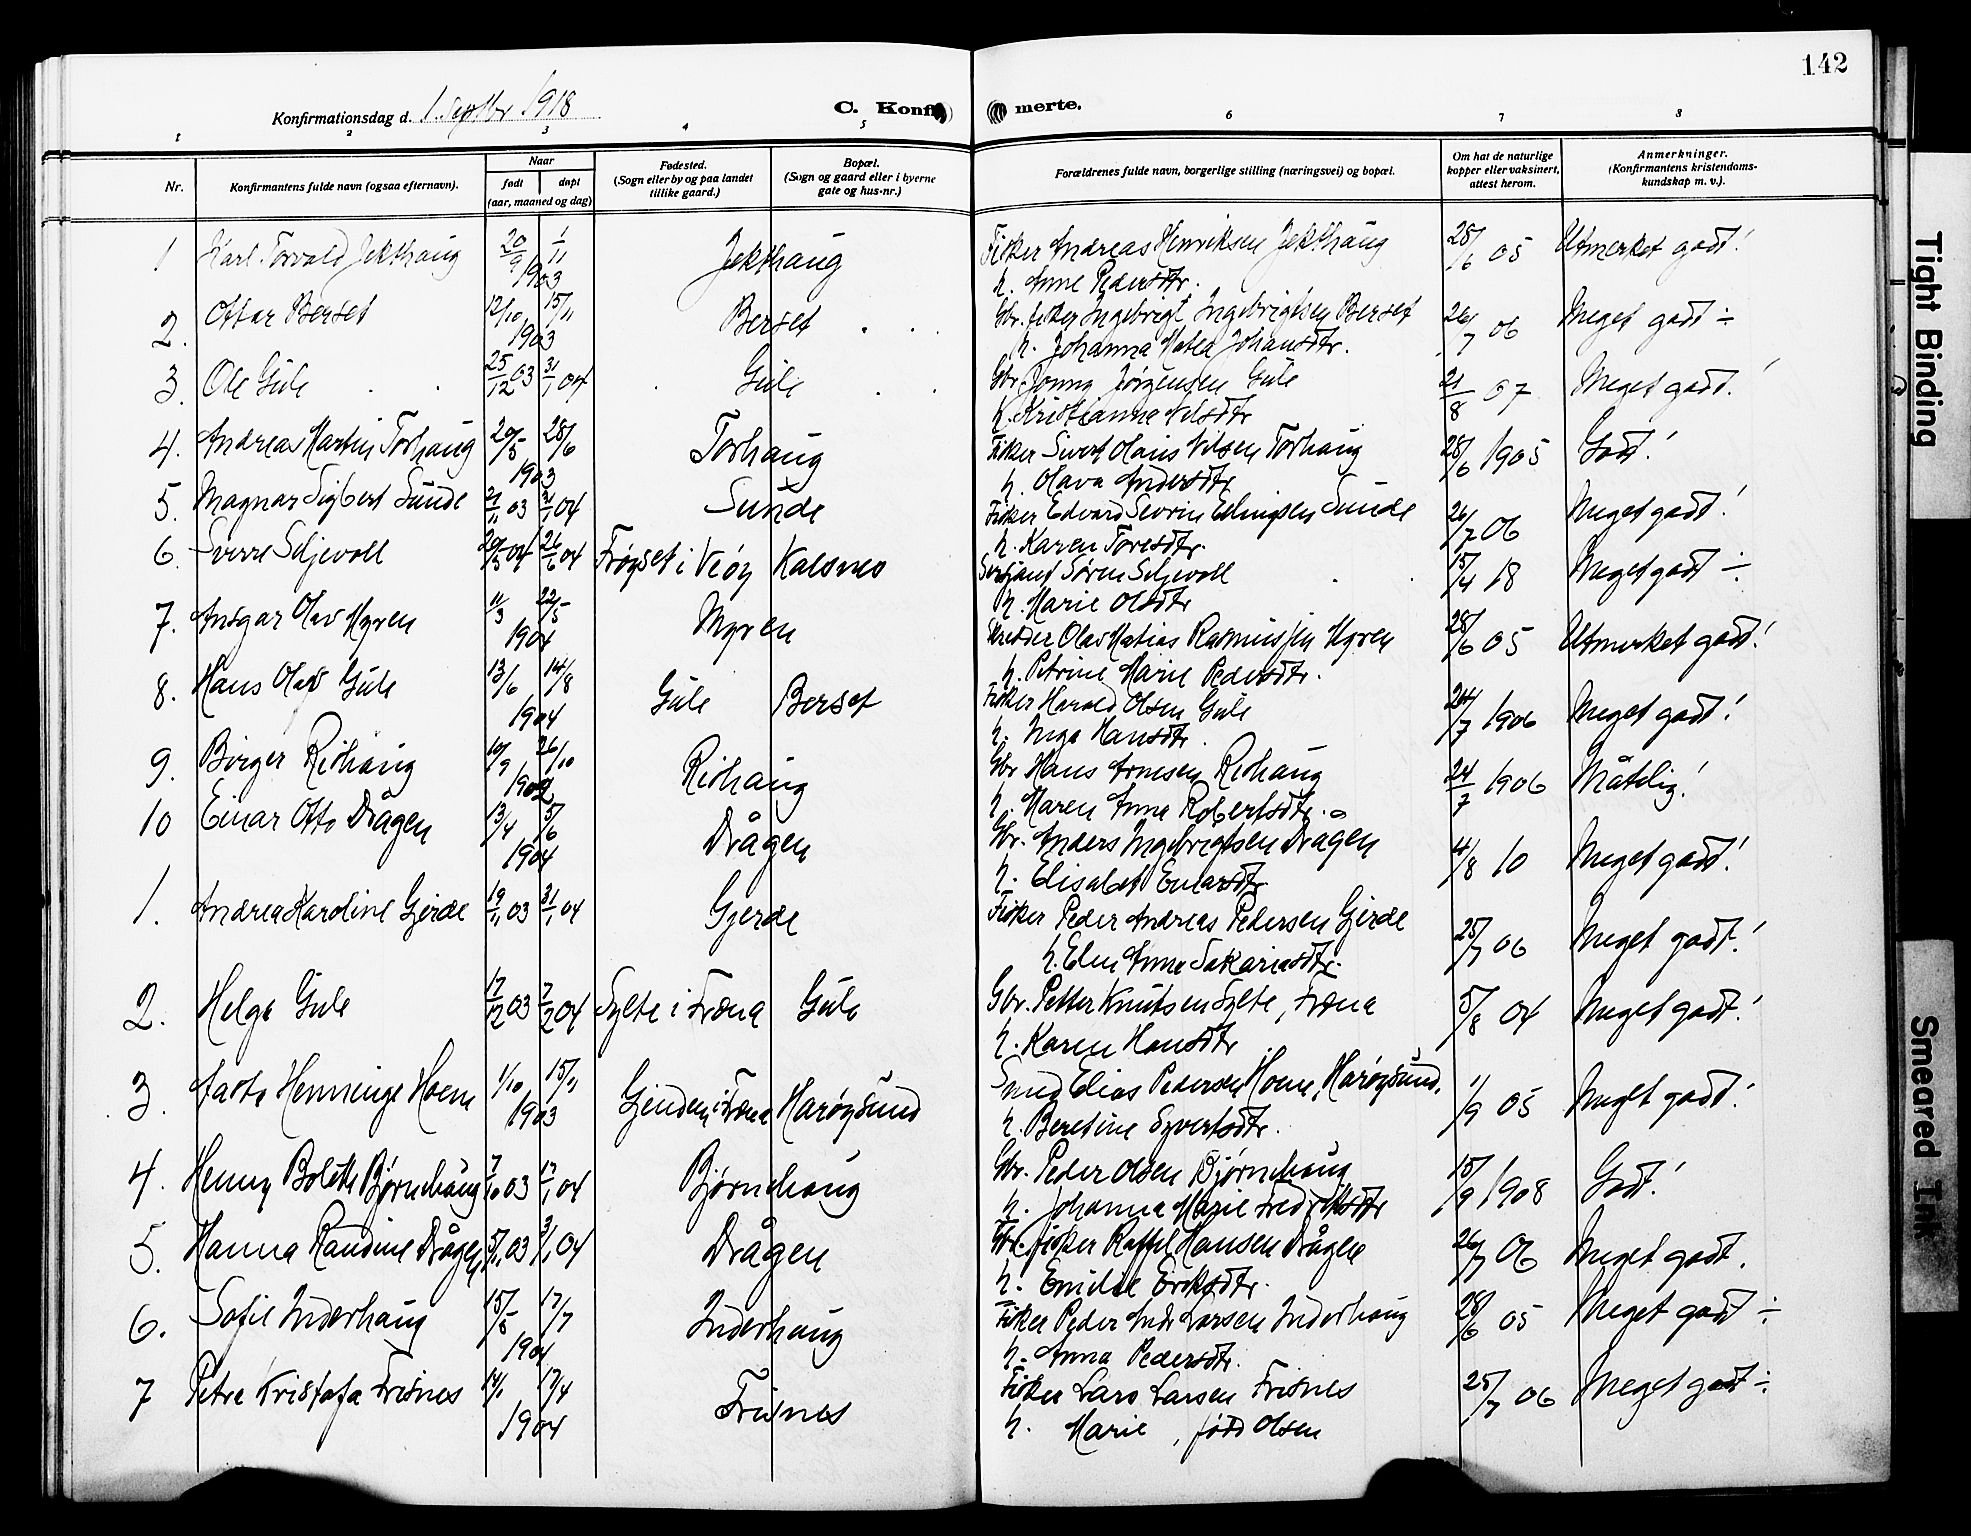 142
Konfirmationsdag d. 1. Septbr 1918 C. Konfirmerte.
1 2 3 4 5 6 7 8
Nr. Konfirmantens fulde navn (ogsaa efternavn). Naar født døpt (aar, maaned og dag) Fødested. (Sogn eller by og paa landet tillike gaard.) Bopæl. (Sogn og gaard eller i byerne gate og hus-nr.) Forældrenes fulde navn, borgerlige stilling (næringsvei) og bopæl. Om hat de naturlige kopper eller vaksinert, attest herom. Anmerkninger. (Konfirmantens kristendomskundskap m. v.).
1 Karl Torvald Jekthaug 20/9 1/11 1903 Jekthaug Fisker Andreas Henriksen Jekthaug 28/6 05 Utmerket godt!
h. Anne Pedersdtr.
2. Ottar Berset 12/10 15/11 1903 Berset Gbr. fisker Ingebrigt Ingebrigtsen Berset 26/7 06 Meget godt ÷
h. Johanna Matea Johansdtr.
3. Ole Gule 25/12 03 31/1 04 Gule Gbr. Jonny Jørgensen Gule 21/8 07 Meget godt!
h. Kristianna Nilsdtr
4. Andreas Martin Torhaug 20/5 28/6 1903 Torhaug Fisker Sivert Olaus Nilsen Torhaug 28/6 1905 Godt!
h. Olava Andersdtr
5. Magnar Sigbert Sunde 21/11 03 31/1 04 Sunde Fisker Edvard Sevrin Edingsen Sunde 26/7 06 Meget godt!
h. Karen Toresdtr.
6. Sverre Seljevoll 20/5 04 26/6 04 Frøyset i Veøy Kalsnes Sersjant Søren Seljevoll 15/4 18 Meget godt ÷
h. Marie Olsdtr
7. Ansgar Olav Myren 11/3 22/5 1904 Myren Skredder Olav Matias Rasmussen Myren 28/6 05 Utmerket godt!
h. Petrine Marie Pedersdtr.
8. Hans Olav Gule 13/6 14/8 1904 Gule Berset Fisker Harald Olsen Gule 24/7 1906 Meget godt!
h. Inga Hansdtr.
9. Birger Rishaug 10/9 26/10 1902 Rishaug Gbr Hans Arnesen Rishaug 24/7 1906 Måtelig!
h. Maren Anna Robertsdtr.
10 Einar Otto Drågen 13/4 5/6 1904 Drågen Gbr. Anders Ingebrigtsen Drågen 4/8 10 Meget godt!
h. Elisabet Einarsdtr
1. Andrea Karoline Gjerde 19/11 03 31/1 04 Gjerde Fisker Peder Andreas Pedersen Gjerde 25/7 06 Meget godt!
h. Elen Anna Sakariasdtr.
2. Helga Gule 17/12 03 7/2 04 Sylte i Fræna Gule Gbr. Petter Knutsen Sylte, Fræna 5/8 04 Meget godt!
h. Karen Hansdtr.
3. Henninge Hoem 1/10 15/11 1903 i Fræna Harøysund Smed Elias Pedersen Hoem, Harøysund. 1/9 05 Meget godt!
h. Beretine Syvertsdtr.
4. Henny Bolette Bjørnehaug 7/10 03 17/1 04 Bjørnehaug Gbr. Peder Olsen Bjørnehaug 15/9 1908 Godt!
h. Johanna Marie Fredriksdtr
5. Hanna Randine Drågen 5/11 03 3/1 04 Drågen Gbr. fisker Raffel Hansen Drågen 26/7 06 Meget godt.
h. Emilie Eriksdtr.
6. Sofie Inderhaug 15/5 17/7 1904 Inderhaug Fisker Peder Andr Larsen Inderhaug 28/6 05 Meget godt ÷
h. Anna Pedersdtr.
7 Petra Kristofa Frisnes 14/1 17/4 1904 Frisnes Fisker Lars Larsen Frisnes 25/7 06 Meget godt ÷
h. Marie, født Olsen
Tight Binding
Smeared Ink